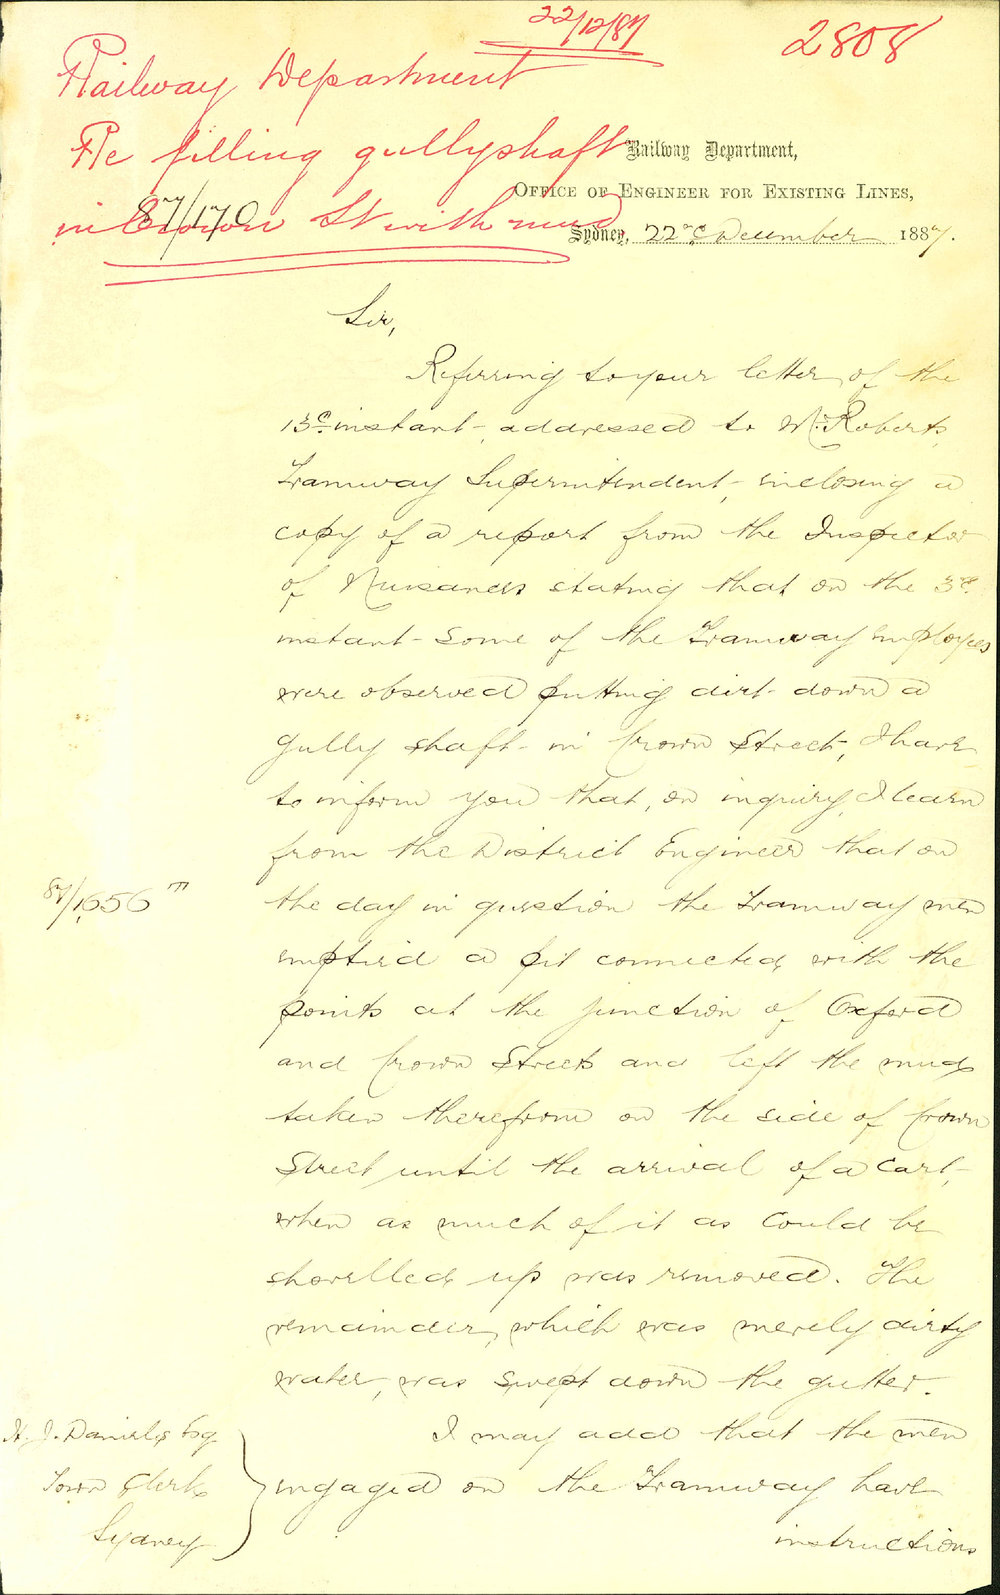 22/12/87
2808
Railway Department
Re filling gullyshaft
in Crown St with mud
87/170
Railway Department,
OFFICE OF ENGINEER FOR EXISTING LINES,
Sydney, 22nd December 1887.
Sir,
Referring to your letter of the
13th instant, addressed to Mr. Roberts,
Tramway Superintendent, inclosing a
copy of a report from the Inspector
of Nuisances stating that on the 3rd
instant some of the Tramway Employees
were observed putting dirt down a
gully shaft in Crown Street, I have
to inform you that, on inquiry, I learn
from the District Engineer that on
87/1656 T
the day in question the Tramway men
emptied a pit connected with the
points at the junction of Oxford
and Crown Streets and left the mud
taken therefrom on the side of Crown
Street until the arrival of a cart,
when as much of it as could be
shovelled up was removed. The
remainder, which was merely dirty
water, was swept down the gutter.
I may add that the men
engaged on the Tramway have
instructions
H. J. Daniels Esq
Town Clerk
Sydney